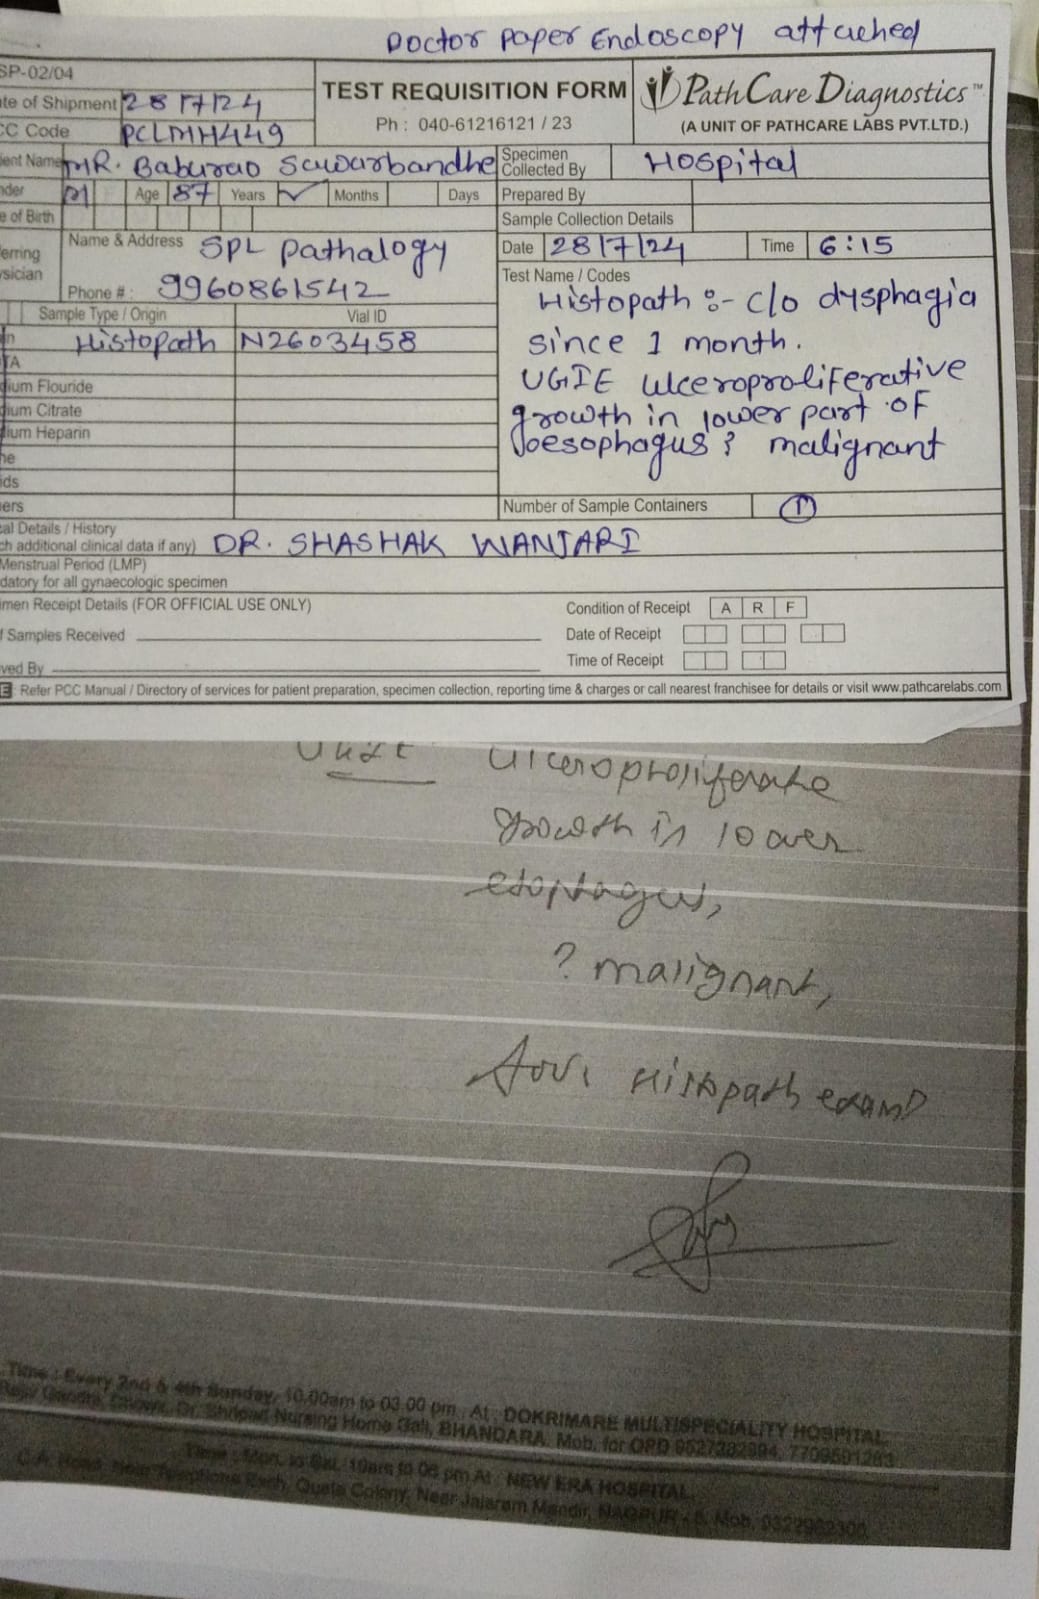 Doctor Paper Endoscopy attached
SP-02/04
te of Shipment 28/7/24
CC Code PCLMH449
TEST REQUISITION FORM
Ph : 040-61216121 / 23
PathCare Diagnostics™
(A UNIT OF PATHCARE LABS PVT.LTD.)
ient Name MR. Baburao Sawarbandhe
Specimen Collected By Hospital
nder M Age 87 Years ✓ Months Days
Prepared By
e of Birth
Sample Collection Details
erring
ysician
Name & Address SPL Pathalogy
Phone # : 9960861542
Date 28/7/24 Time 6:15
Test Name / Codes
Histopath :- c/o dysphagia
since 1 month.
UGIE ulceroproliferative
growth in lower part of
oesophagus ? malignant
Sample Type / Origin Vial ID
n Histopath N2603458
TA
ium Flouride
ium Citrate
ium Heparin
ne
ids
ers
Number of Sample Containers 1
cal Details / History
ch additional clinical data if any) DR. SHASHAK WANJARI
Menstrual Period (LMP)
datory for all gynaecologic specimen
imen Receipt Details (FOR OFFICIAL USE ONLY)
Condition of Receipt A R F
f Samples Received
Date of Receipt
ved By
Time of Receipt
E : Refer PCC Manual / Directory of services for patient preparation, specimen collection, reporting time & charges or call nearest franchisee for details or visit www.pathcarelabs.com
Ulceroproliferate
growth in lower
esophagus,
? malignant,
Adv. Histopath exam
Time : Every 2nd & 4th Sunday, 10.00am to 03.00 pm. At : DOKRIMARE MULTISPECIALITY HOSPITAL
Rajiv Gandhi Chowk, Dr. Shripad Nursing Home Gali, BHANDARA. Mob. for OPD 9527382994, 7709591283
Time : Mon. to Sat. 10am to 06 pm At : NEW ERA HOSPITAL
C.A. Road, Near Telephone Exch, Queta Colony, Near Jalaram Mandir, NAGPUR - 8. Mob.